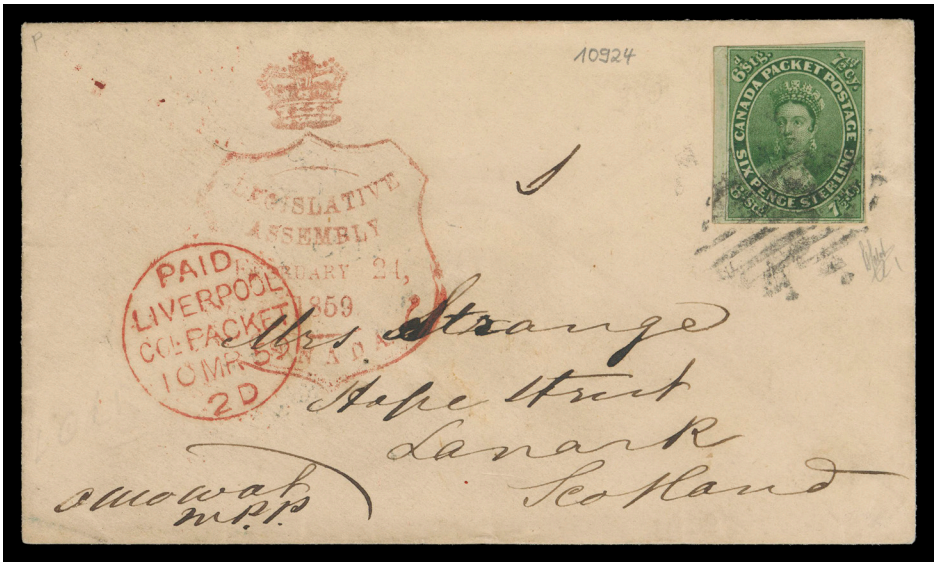 P
10924
6d Stg. 7½d Cy.
CANADA PACKET POSTAGE
SIX PENCE STERLING
6d Stg. 7½d Cy.
LEGISLATIVE
ASSEMBLY
FEBRUARY 24,
1859
CANADA
PAID
LIVERPOOL
COL. PACKET
10 MR 59
2D
Mrs Strange
Hope Street
Lanark
Scotland
O Mowat
M.P.P.